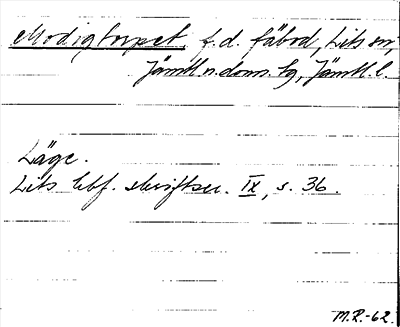 Modigtorpet, f.d. fäbod, Lits sn,
Jämtl. n. doms. tg, Jämtl. l.
Läge.
Lits hbf. skriftser. IX, s. 36.
M.R.-62.